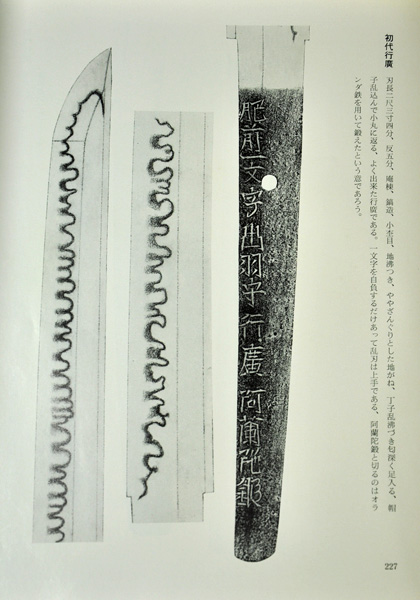 初代行廣
刃長二尺三寸四分、反五分、庵棟、鎬造、小杢目、地沸つき、ややざんぐりとした地がね、丁子乱沸づき匂深く足入る、帽
子乱込んで小丸に返る、よく出来た行廣である。一文字を自負するだけあって乱刃は上手である、阿蘭陀鍛と切るのはオラ
ンダ鉄を用いて鍛えたという意であろう。
肥前一文字出羽守行廣 阿蘭陀鍛
227